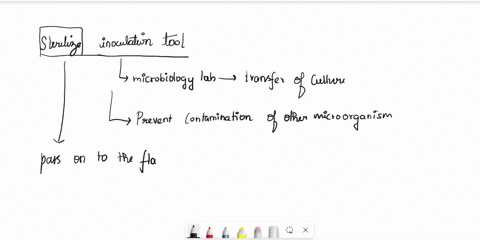 Sterilize inoculation tool
microbiology lab → transfer of culture
Prevent contamination of other microorganism
pass on to the fla